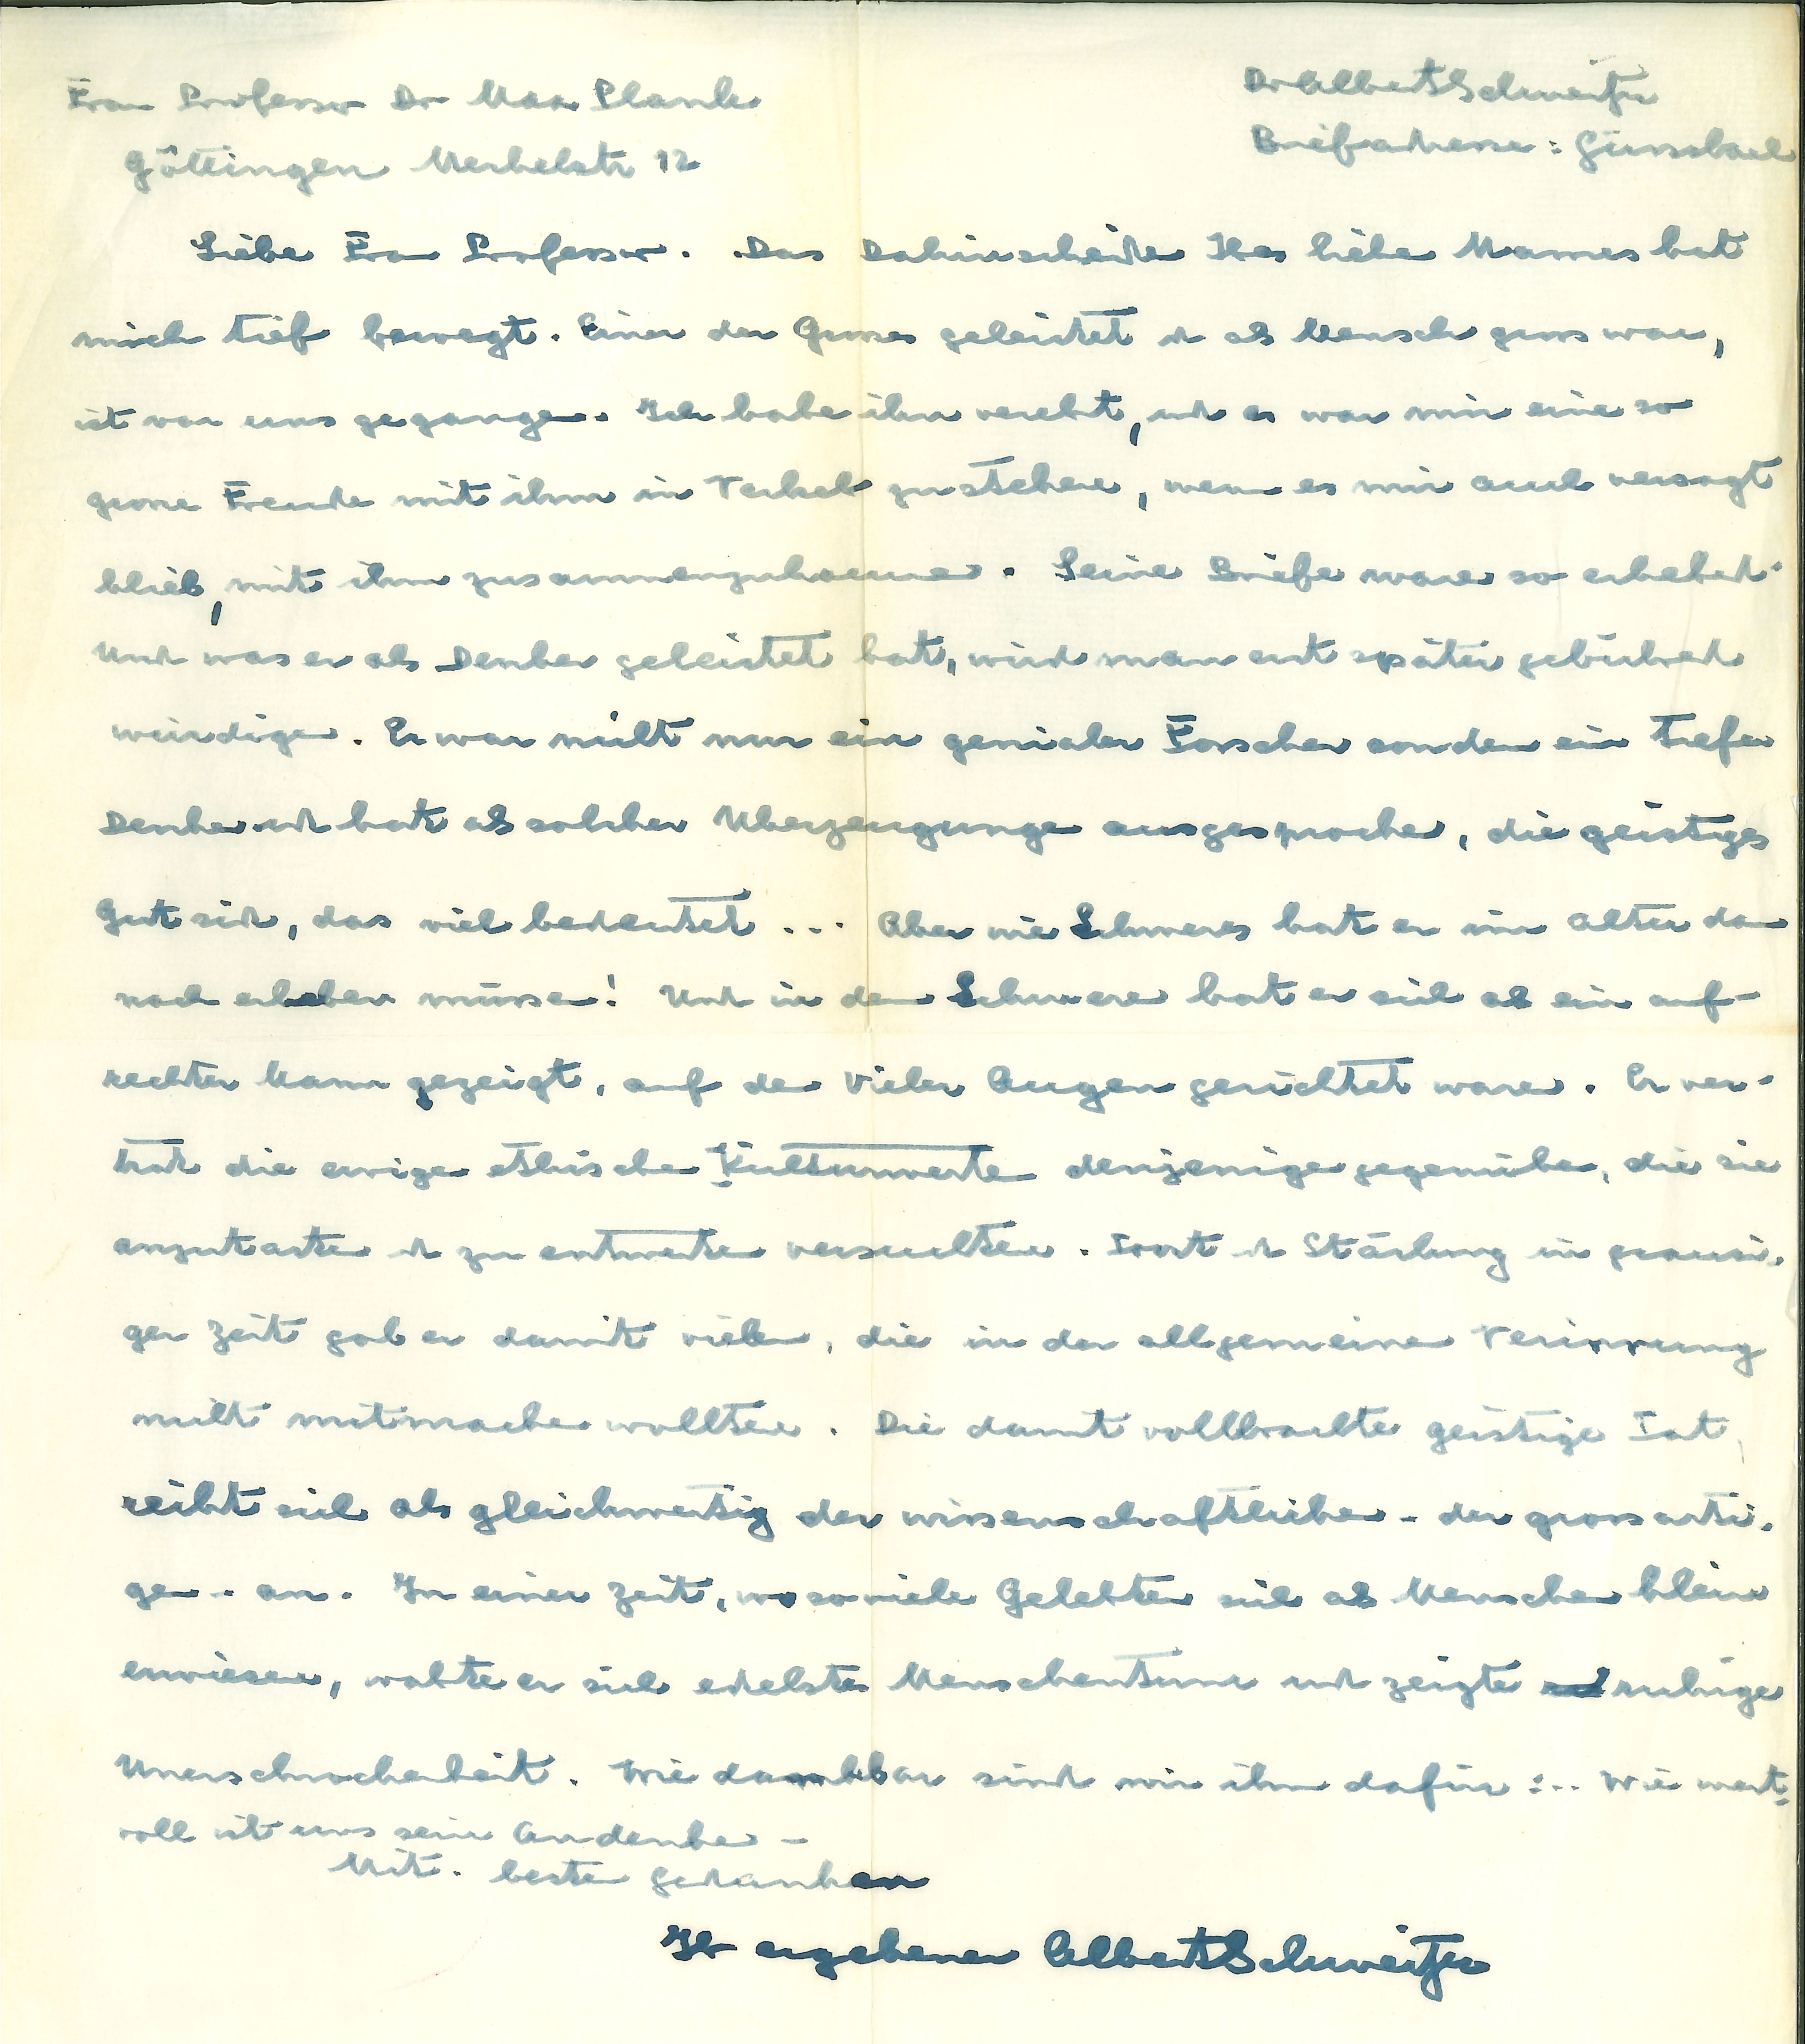 Frau Professor Dr Max Planck
Dr Albert Schweitzer
Göttingen Merkelstr 12
Briefadresse: Günsbach
Liebe Frau Professor. Das Dahinscheiden Ihres lieben Mannes hat
mich tief bewegt. Einer der Grosses geleistet u als Mensch gross war,
ist von uns gegangen. Ich habe ihn verehrt, und es war mir eine so
grosse Freude mit ihm in Verkehr zu stehen, wenn es mir auch versagt
blieb, mit ihm zusammenzukommen. Seine Briefe waren so erhebend.
Und was er als Denker geleistet hat, wird man erst später gebührend
würdigen. Er war nicht nur ein genialer Forscher sondern ein tiefer
Denker und hat als solcher Überzeugungen ausgesprochen, die geistiges
Gut sind, das viel bedeutet ... Aber wie Schweres hat er im Alter dann
noch erleben müssen! Und in dem Schweren hat er sich als ein auf-
rechter Mann gezeigt, auf den vieler Augen gerichtet waren. Er ver-
trat die ewigen ethischen Kulturwerte denjenigen gegenüber, die sie
anzutasten u zu entwerten versuchten. Trost u Stärkung in grausi-
ger Zeit gab er damit vielen, die in der allgemeinen Verirrung
nicht mitmachen wollten. Die damit vollbrachte geistige Tat
reiht sich als gleichwertig der wissenschaftlichen - der grossarti-
gen - an. In einer Zeit, wo so viele Gelehrten sich als Menschen klein
erwiesen, wahrte er sich edelstes Menschentum und zeigte ruhige
Unerschrockenheit. Wie dankbar sind wir ihm dafür ... Wie wert-
voll ist uns sein Andenken -
Mit besten Gedanken
Ihr ergebener Albert Schweitzer